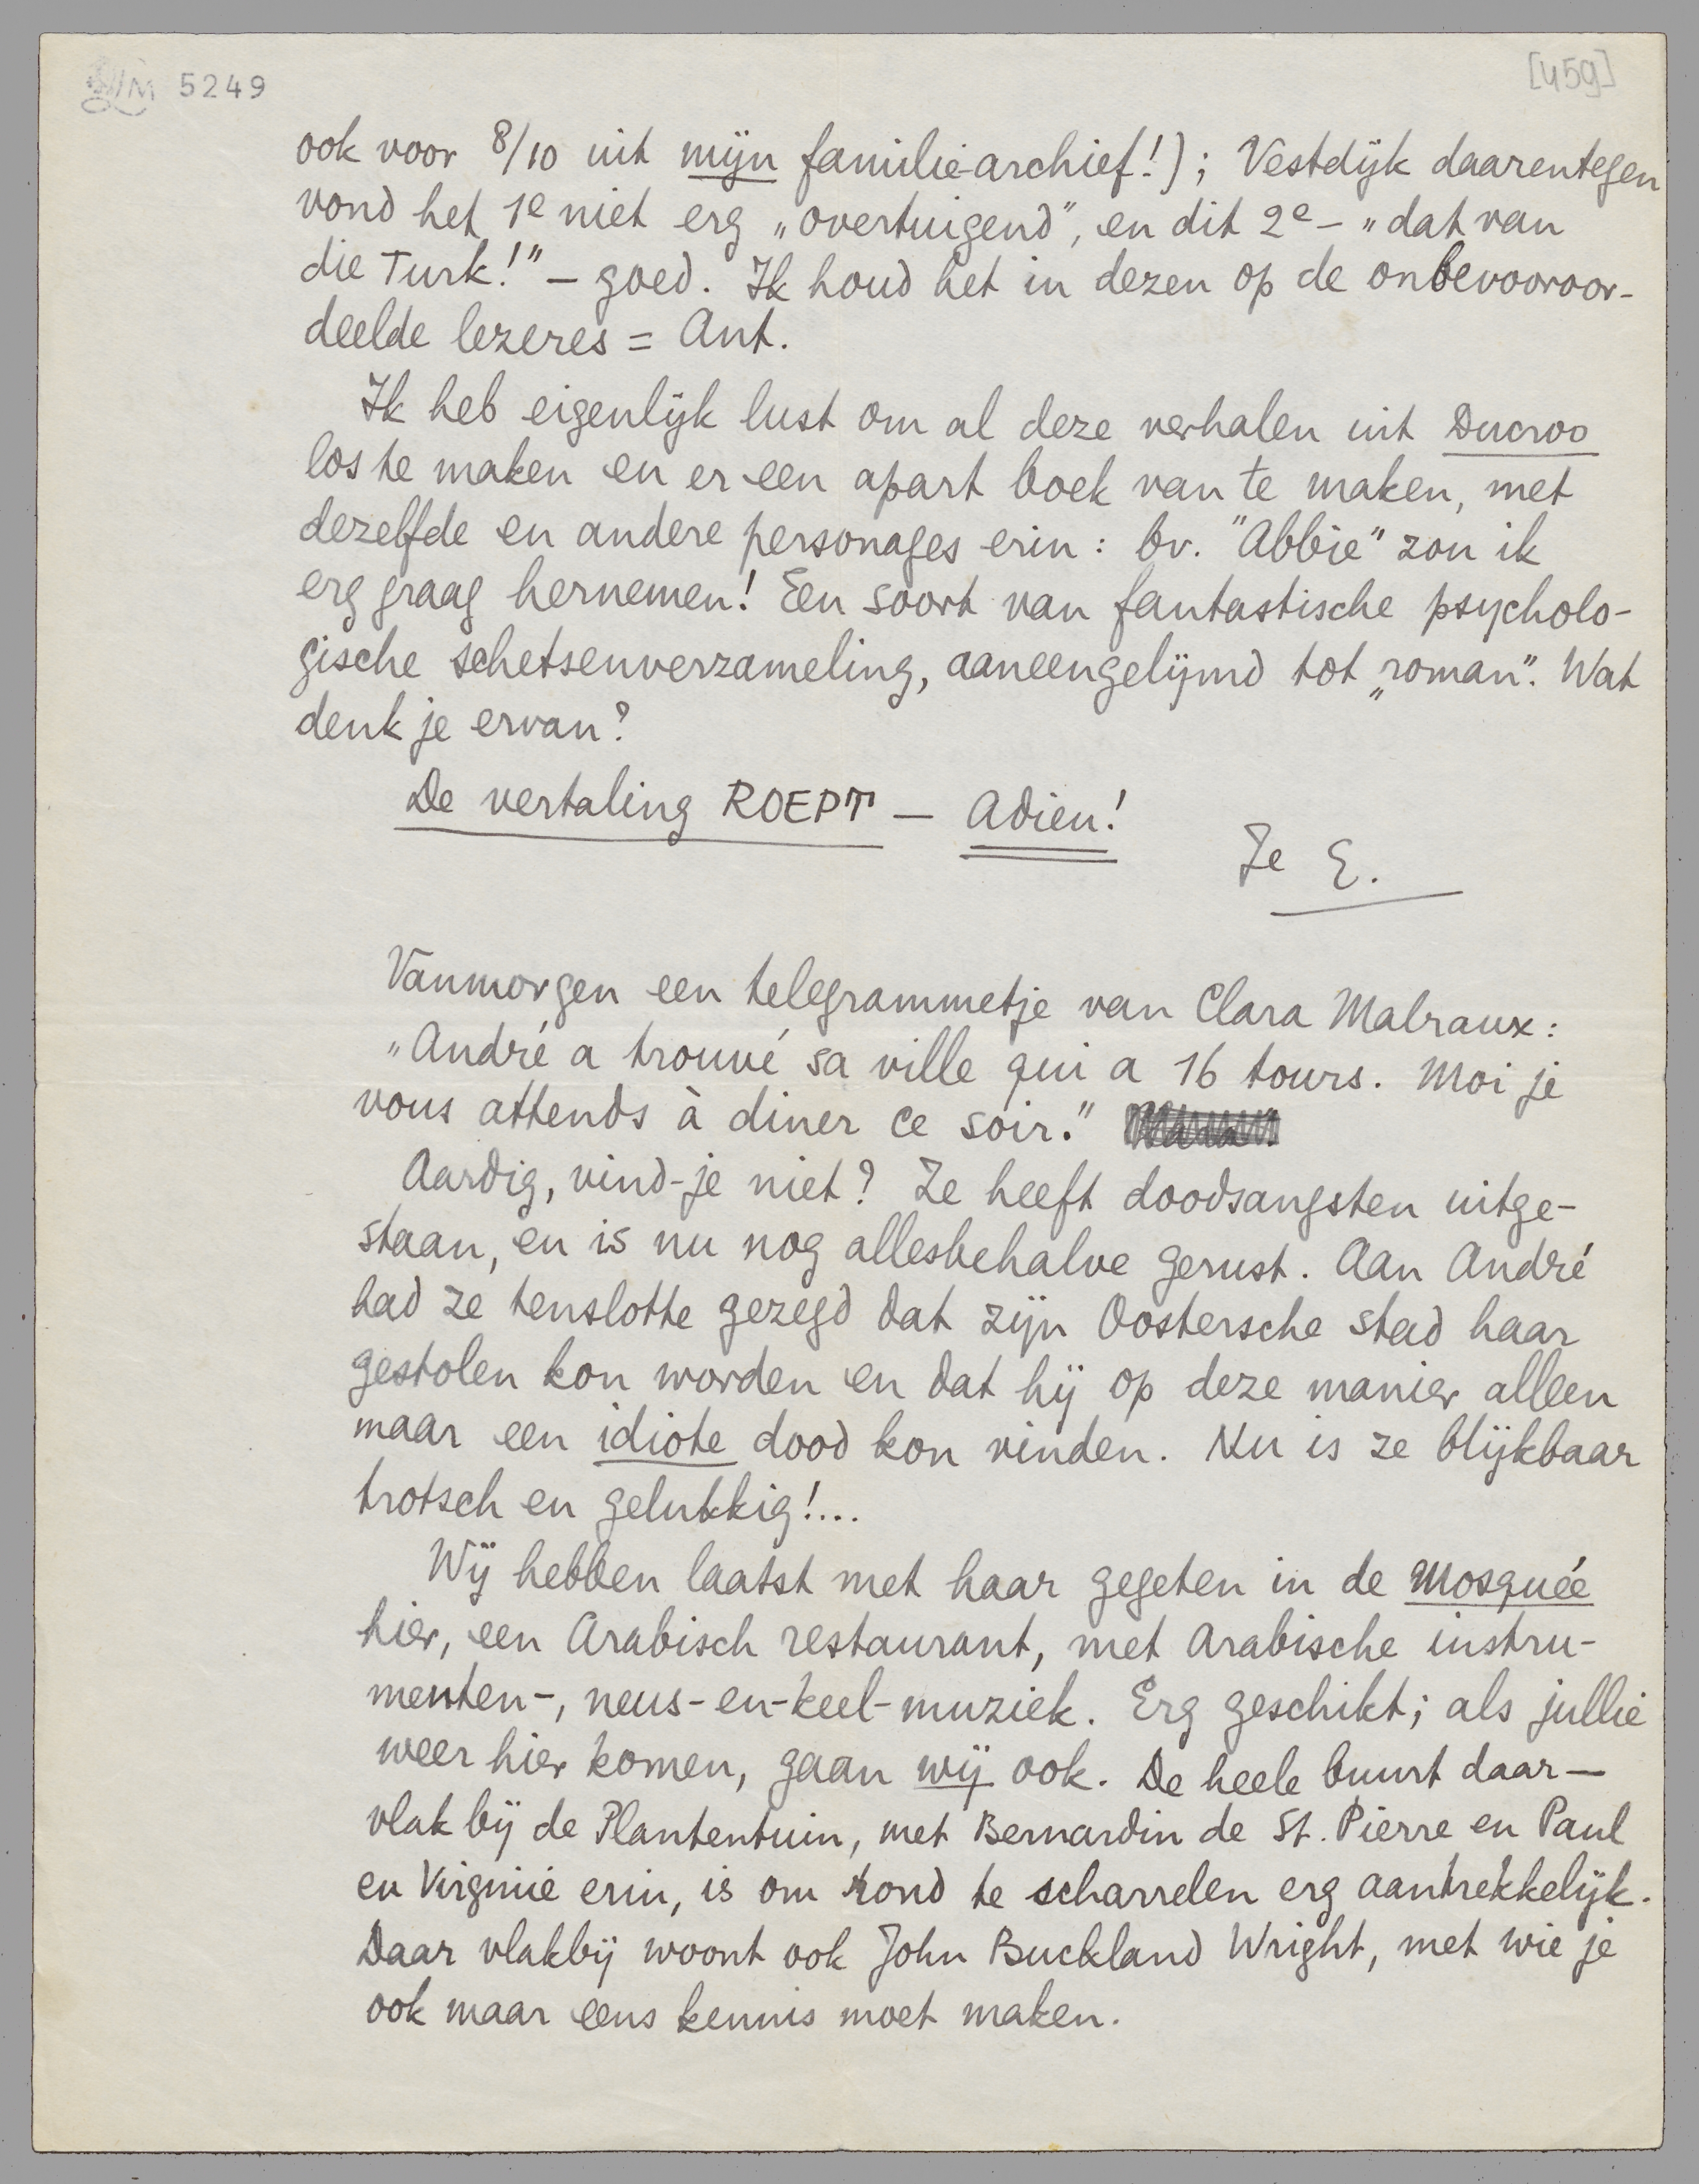 LM 5249
[459]
ook voor 8/10 uit mijn familie-archief!); Vestdijk daarentegen
vond het 1e niet erg „overtuigend”, en dit 2e – „dat van
die Turk!” – goed. Ik houd het in dezen op de onbevooroor-
deelde lezeres = Ant.
Ik heb eigenlijk lust om al deze verhalen uit Ducroo
los te maken en er een apart boek van te maken, met
dezelfde en andere personages erin: bv. "Abbie" zou ik
erg graag hernemen! Een soort van fantastische psycholo-
gische schetsenverzameling, aaneengelijmd tot „roman”. Wat
denk je ervan?
De vertaling ROEPT – Adieu!
Je E.
Vanmorgen een telegrammetje van Clara Malraux:
„André a trouvé sa ville qui a 16 tours. Moi je
vous attends à diner ce soir.”
Aardig, vind-je niet? Ze heeft doodsangsten uitge-
staan, en is nu nog allesbehalve gerust. Aan André
had ze tenslotte gezegd dat zijn Oostersche stad haar
gestolen kon worden en dat hij op deze manier alleen
maar een idiote dood kon vinden. Nu is ze blijkbaar
trotsch en gelukkig!...
Wij hebben laatst met haar gegeten in de Mosquée
hier, een Arabisch restaurant, met Arabische instru-
menten-, neus-en-keel-muziek. Erg geschikt; als jullie
weer hier komen, gaan wij ook. De heele buurt daar –
vlak bij de Plantentuin, met Bernardin de St. Pierre en Paul
en Virginie erin, is om rond te scharrelen erg aantrekkelijk.
Daar vlakbij woont ook John Buckland Wright, met wie je
ook maar eens kennis moet maken.